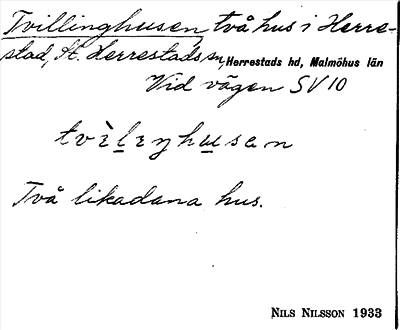 Tvillinghusen, två hus i Herre-
stad, St. Herrestads sn, Herrestads hd, Malmöhus län
Vid vägen SV 10
tvìlıŋhusan
Två likadana hus.
NILS NILSSON 1933